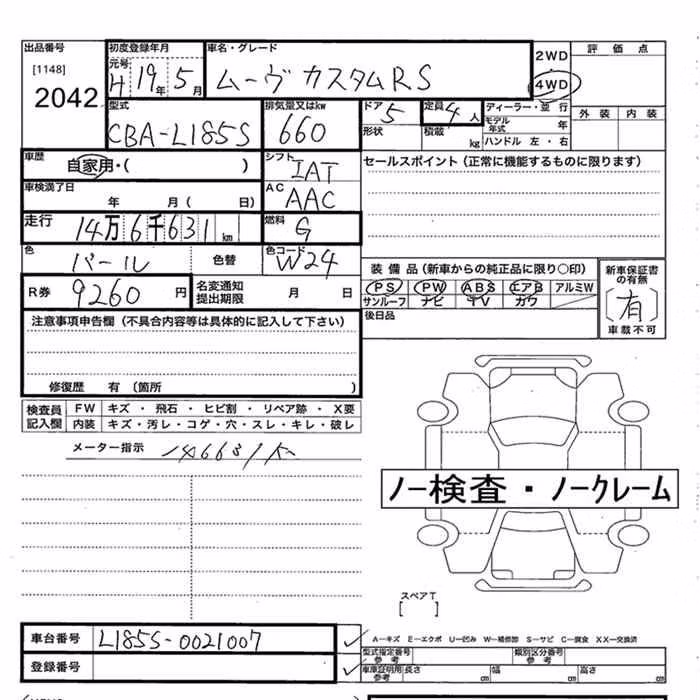 出品番号 初度登録年月 車名・グレード 2WD 評価点
[1148] 元号 H 19年 5月 ムーヴ カスタムRS 4WD
2042 型式 排気量又はkw ドア 5 定員 4人 ディーラー・並行 外装 内装
CBA-L185S 660 形状 積載 kg モデル年式 年
ハンドル 左・右
車歴 自家用・( ) シフト IAT セールスポイント(正常に機能するものに限ります)
車検満了日 年 月( 日) AC AAC
走行 14万6千631km 燃料 G
色 パール 色替 色コード W24 装備品(新車からの純正品に限り○印) 新車保証書の有無
R券 9260円 名変通知提出期限 月 日 PS PW ABS エアB アルミW [有]
サンルーフ ナビ TV カワ 車載不可
注意事項申告欄(不具合内容等は具体的に記入して下さい) 後日品
修復歴 有(箇所 )
検査員 FW キズ・飛石・ヒビ割・リペア跡・X要
記入欄 内装 キズ・汚レ・コゲ・穴・スレ・キレ・破レ
メーター指示 146631K
ノー検査・ノークレーム
スペアT
[ ]
車台番号 L185S-0021007 A―キズ E―エクボ U―凹み W―補修跡 S―サビ C―腐食 XX―交換済
型式指定番号 参考 類別区分番号 参考
登録番号 車庫証明用 参考 長さ cm 幅 cm 高さ cm